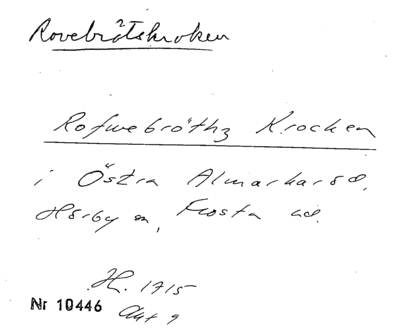 Rovebråtskroken
Rofwebröthz Krocken
i Östra Almarkarsd,
Hörby sn, Frosta hd.
H. 1715
Nr 10446 Akt 9